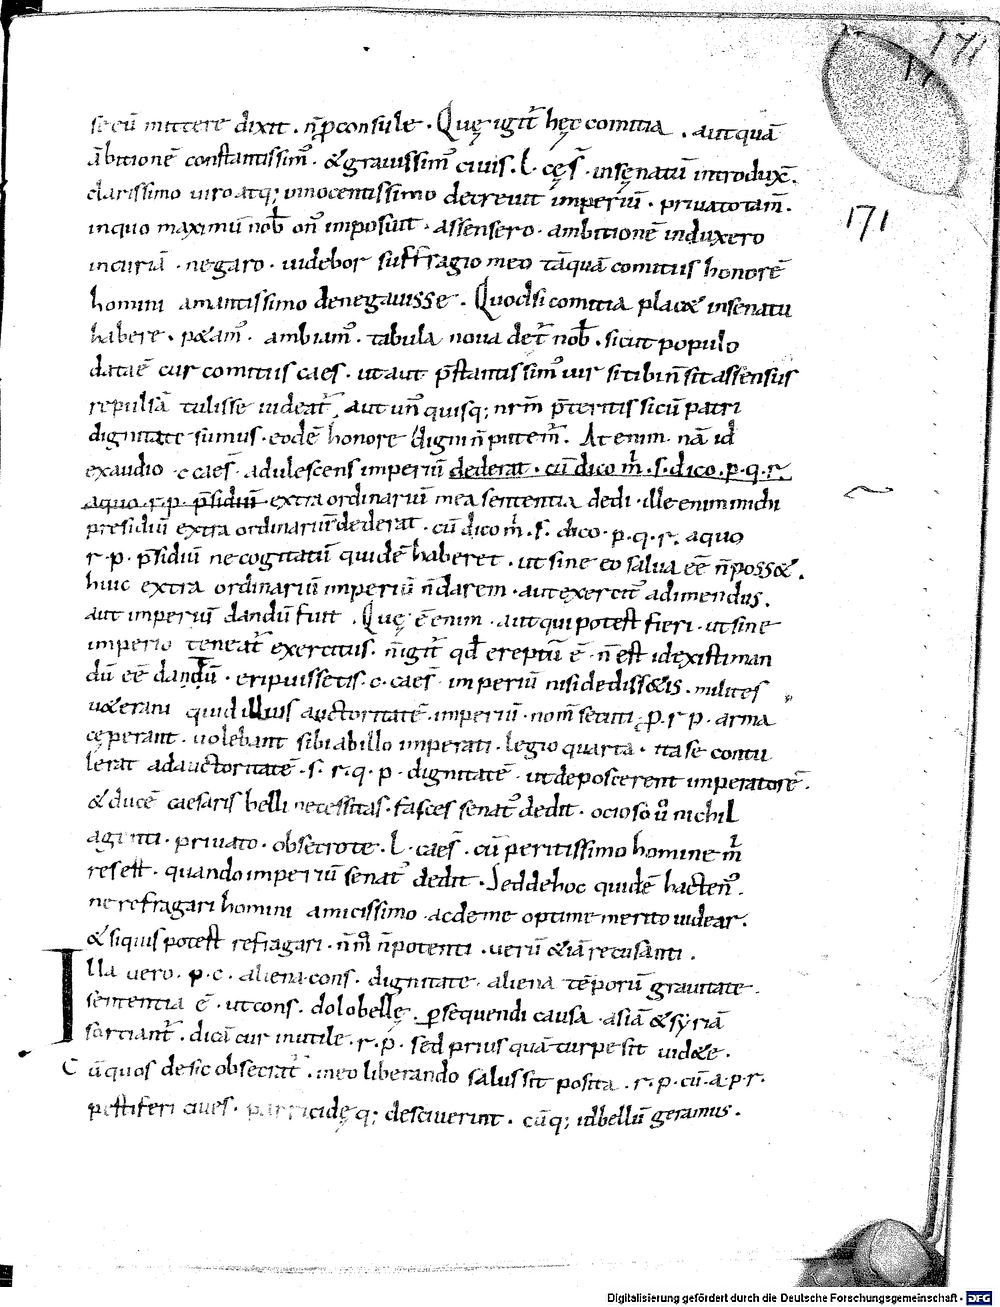 171
171
secū mittere dixit . n̄ ꝓconsule . Quę igit̄ hęc comitia . aut quā
ābitionē constantissimꝰ . & grauissimꝰ ciuis . L . cęs̄ . in senatū introdux̄ .
clarissimo uiro atq; innocentissimo decreuit imperiū . priuato tam̄ .
in quo maximū nob̄ onꝰ imposuit . assensero . ambitionē induxero
in curiā . negaro . uidebor suffragio meo tāquā comitiis honorē
homini amantissimo denegauisse . Quod si comitia plac& in senatu
habere . p&amꝰ . ambiamꝰ . tabula noua det̄ nob̄ . sicut populo
data ē cur comittis caes . ut aut p̄stantissimꝰ uir si tibi n̄ sit assensus
repulsā tulisse uideat̄ , aut unꝰ quisq; nrm̄ p̄teritis si cū patri
dignitate sumus . eodē honore digni n̄ putem̄ . At enim . nā id
exaudio . c caes̄ . adulescens imperiū dederat . cū dico m̄ . s . dico . p . q . r .
a quo . r . p . p̄sidiū extra ordinariū mea sententia dedi . ille enim michi
presidiū extra ordinariū dederat . cū dico m̄ . s . dico . p . q . r . a quo
r . p . p̄sidiū ne cogitatū quidē haberet . ut sine eo salua eē n̄ poss& .
huic extra ordinariū imperiū n̄ darem . aut exercitꝰ adimendus .
aut imperiū dandū fuit . Quę ē enim . aut qui potest fieri . ut sine
imperio teneat̄ exercitus . n̄ igit̄ qd̄ ereptū ē . n̄ est id existiman
dū eē dandū . eripuissetis . c . caes̄ . imperiū nisi dediss&is . milites
u&erani qui d illius auctoritatē . imperiū . nom̄ secuti . ꝓ . r p . arma
cęperant . uolebant sibi ab illo imperari . legio quarta . ita se contu
lerat ad auctoritatē . s . r . q . p . dignitatē . ut deposcerent imperatorē .
& ducē caesaris belli necessitas . fasces senatꝰ dedit . ocioso ū nichil
agenti . priuato . obsecro te . L . caes̄ . cū peritissimo homine m̄
res est . quando imperiū senatꝰ dedit . Sed de hoc quidē hactenꝰ .
ne refragari homini amicissimo . ac de me optime merito uidear .
& si quis potest refragari . n̄ m̊ n̄ potenti . uerū & iā recusanti .
Illa uero . p . c . aliena . cons . dignitate . aliena tēporū grauitate .
sententia ē . ut cons . dolobellę . ꝑsequendi causa . asiā & syriā
sortiant̄ . dicā cur inutile . r . p . sed prius quā turpe sit uid&e .
Cū quos desic obsecrat̄ . meo liberando salus sit posita . r . p . cū . a . p . r .
pestiferi ciues . parricidę q; desciuerint . cūq; id bellū geramus .
Digitalisierung gefördert durch die Deutsche Forschungsgemeinschaft - DFG